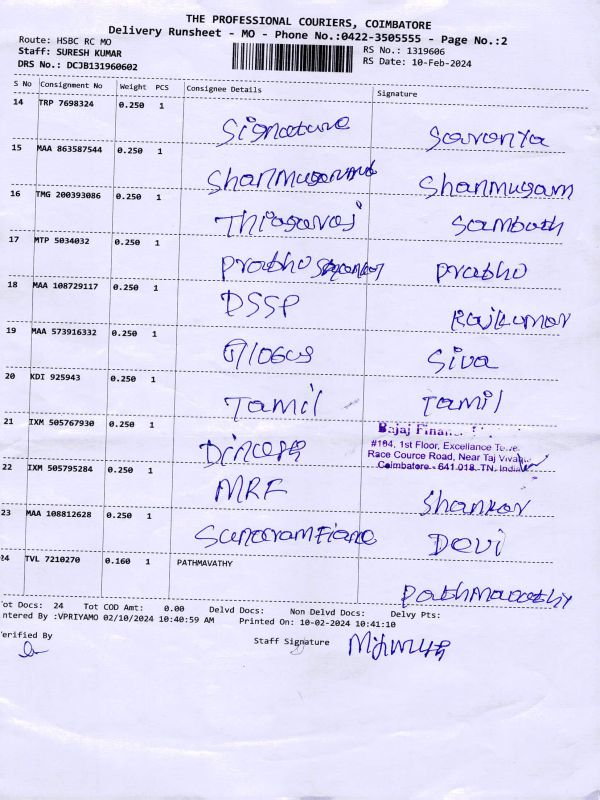 THE PROFESSIONAL COURIERS, COIMBATORE
Delivery Runsheet - MO - Phone No.:0422-3505555 - Page No.:2
Route: HSBC RC MO
RS No.: 1319606
Staff: SURESH KUMAR
RS Date: 10-Feb-2024
DRS No.: DCJB131960602
S No Consignment No Weight PCS Consignee Details Signature
14 TRP 7698324 0.250 1
Signature Saranya
15 MAA 863587544 0.250 1
Shanmugam
16 TMG 200393086 0.250 1
Thiagaraj Sambath
17 MTP 5034032 0.250 1
Prabho Prabho
18 MAA 108729117 0.250 1
DSSP Rajkumar
19 MAA 573916332 0.250 1
Siva
20 KDI 925943 0.250 1
Tamil Tamil
21 IXM 505767930 0.250 1
Bajaj
#104, 1st Floor, Excellance
Race Cource Road, Near Taj
Coimbatore - 641 018. TN. India
Dinesh
22 IXM 505795284 0.250 1
MRF Shankar
23 MAA 108812628 0.250 1
Devi
24 TVL 7210270 0.160 1 PATHMAVATHY
Pathmavathy
ot Docs: 24 Tot COD Amt: 0.00 Delvd Docs: Non Delvd Docs: Delvy Pts:
ntered By :VPRIYAMO 02/10/2024 10:40:59 AM Printed On: 10-02-2024 10:41:10
erified By Staff Signature